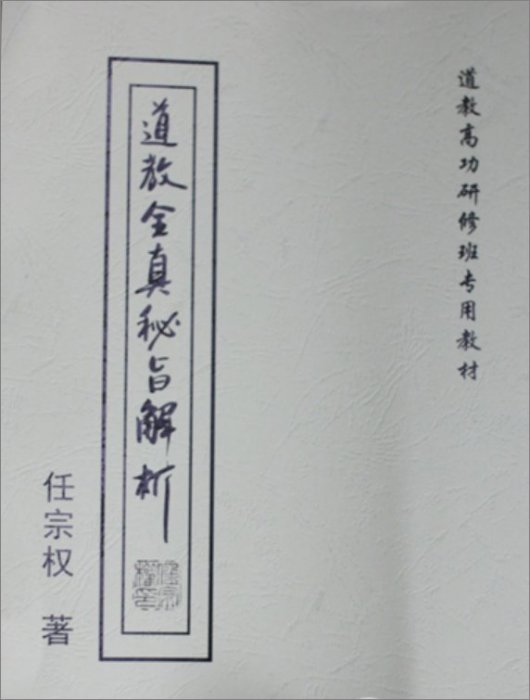 道教高功研修班专用教材
道教全真秘旨解析
任宗权 著